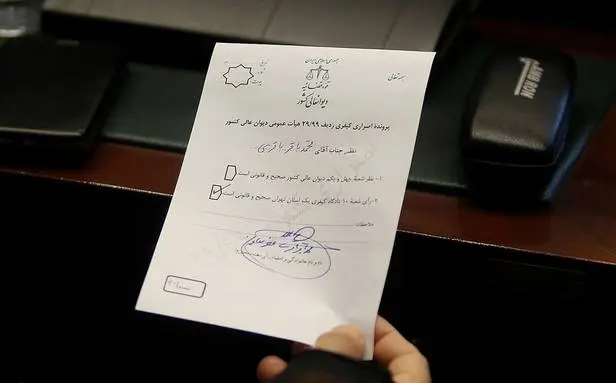 جمهوری اسلامی ایران
بسمه تعالی
قوه قضائیه
دیوانعالی کشور
تاریخ
شماره
پیوست
پرونده اصراری کیفری ردیف ۲۹/۹۹ هیأت عمومی دیوان عالی کشور
نظر جناب آقای محمد باقر باقری
۱- نظر شعبه چهل و یکم دیوان عالی کشور صحیح و قانونی است
۲- رأی شعبه ۱۰ دادگاه کیفری یک استان تهران صحیح و قانونی است
ملاحظات